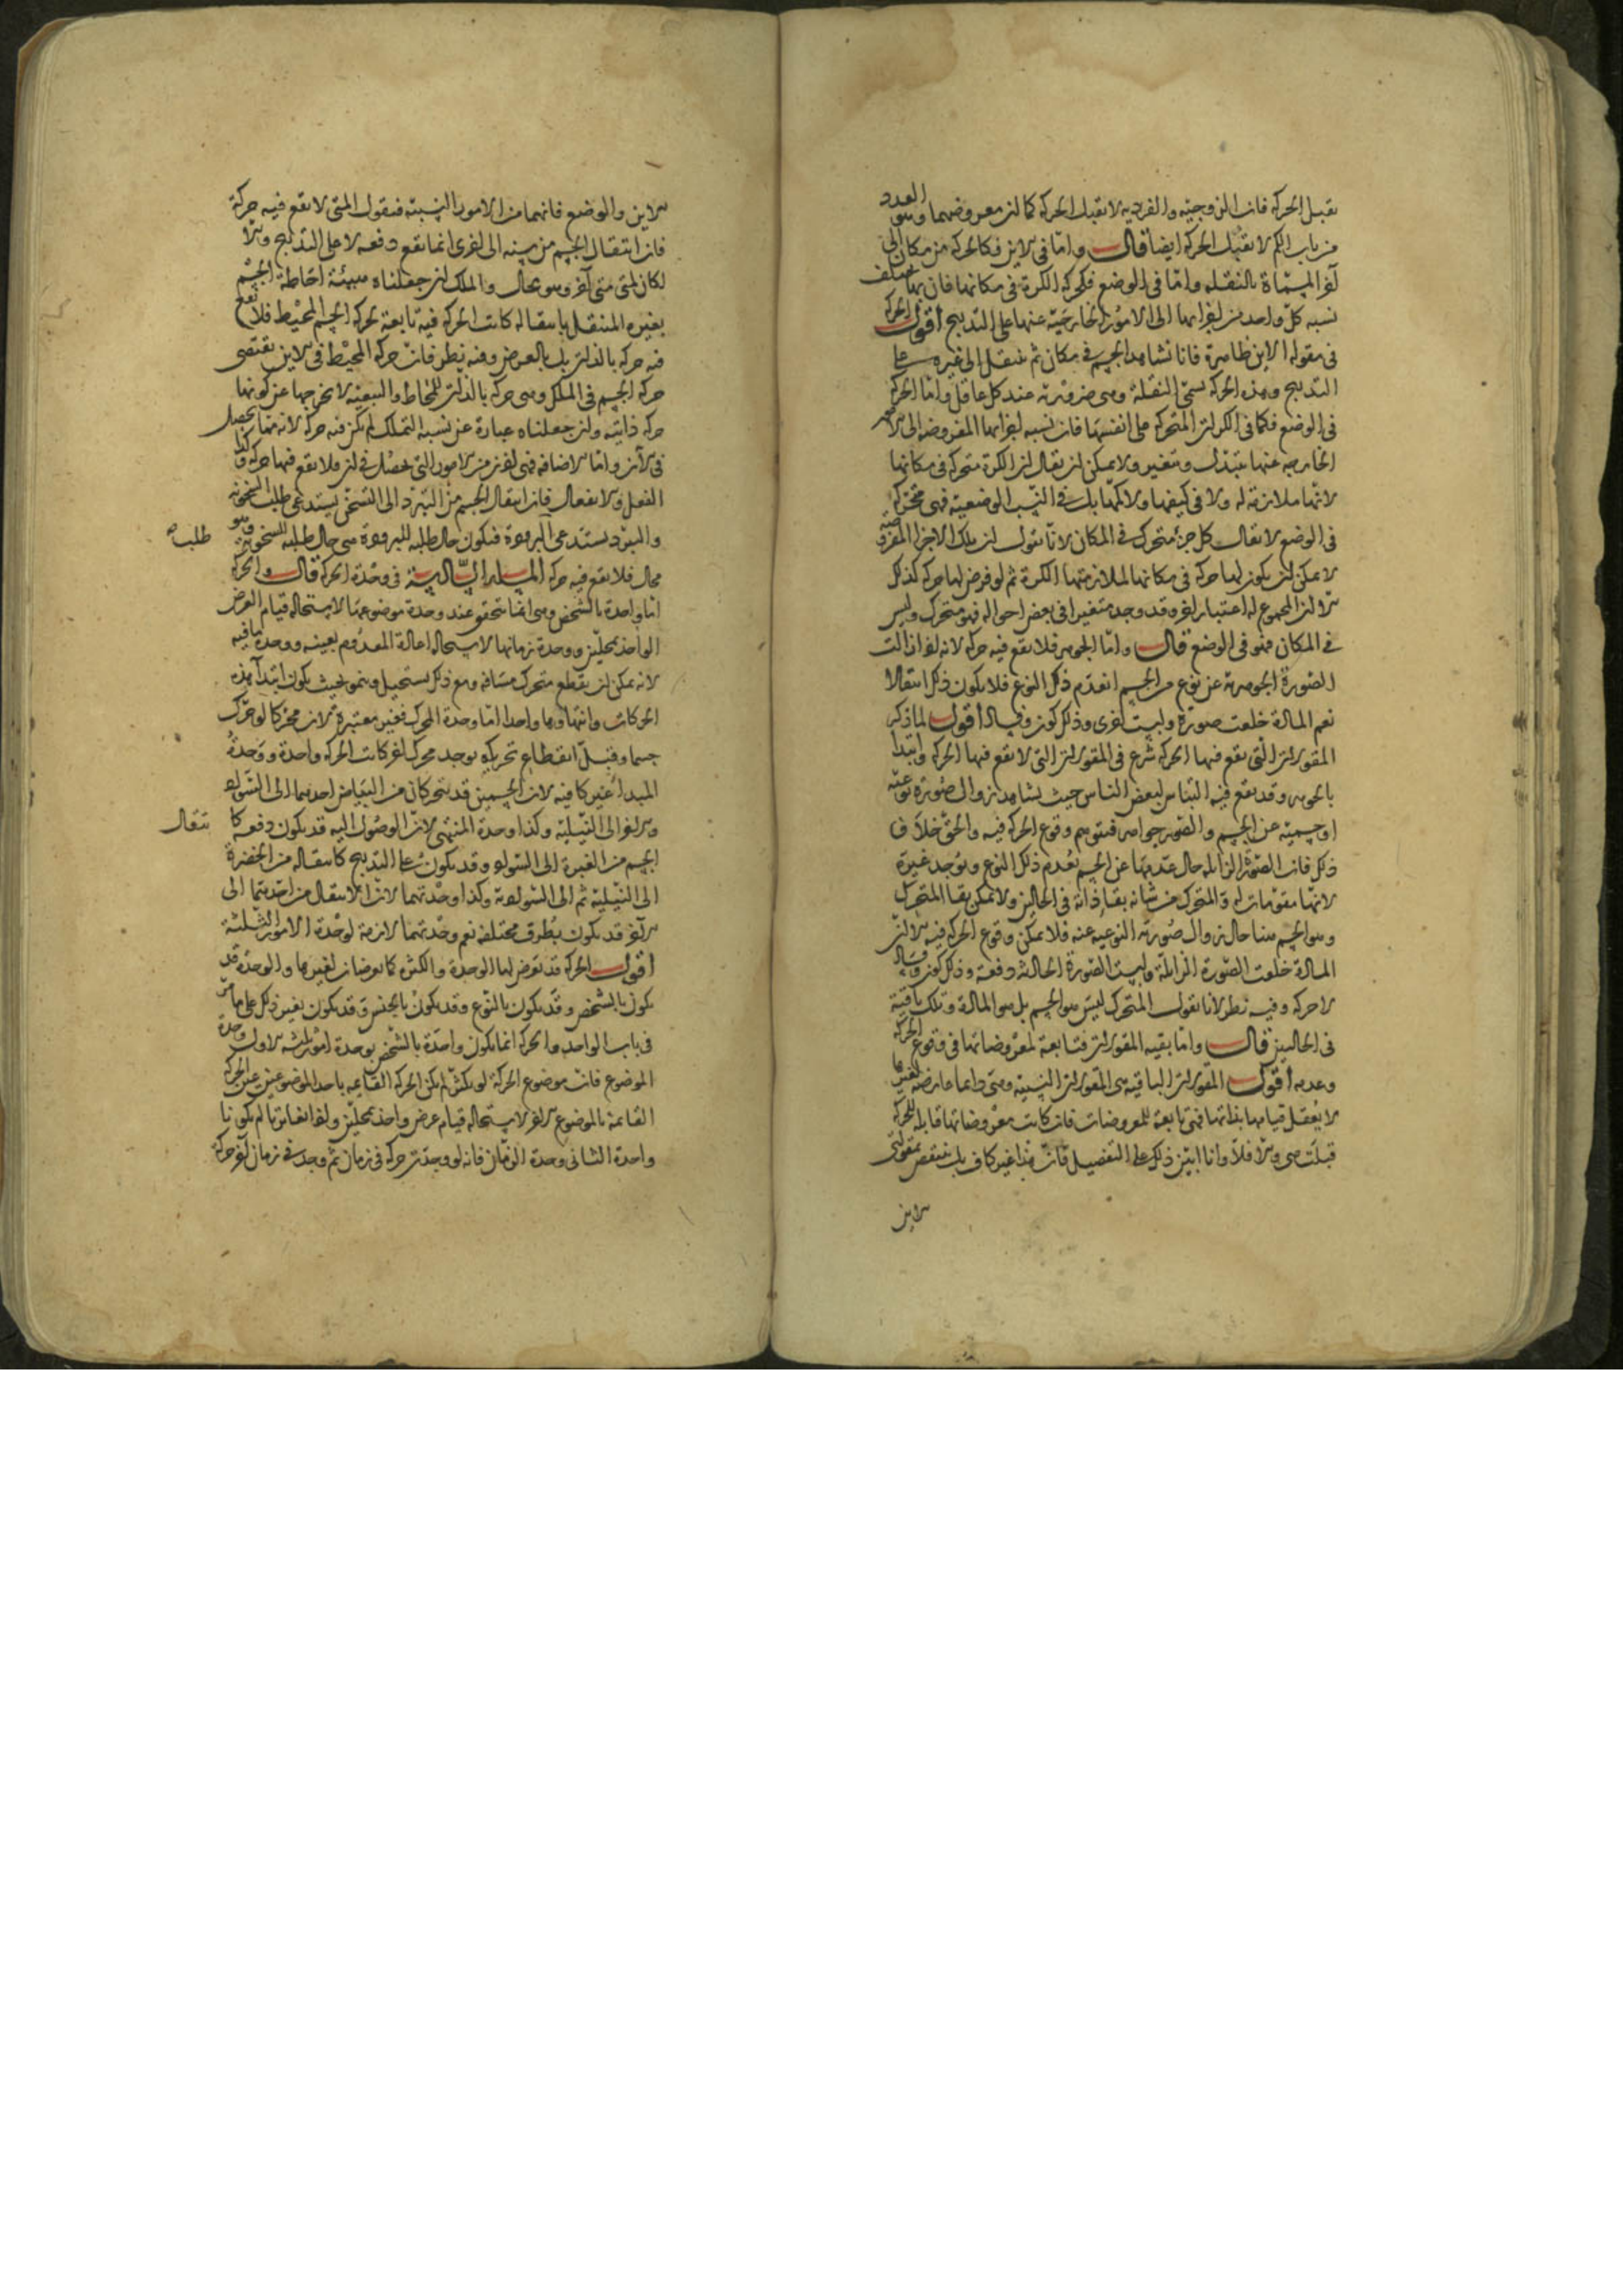 تقبل الحركة فان الزوجية والفردية لا تقبل الحركة كما ان معروضهما وهو العدد
من باب الكم لا تقبل الحركة ايضا قال واما في الاين فكالحركة من مكان الى
آخر المسماة بالنقلة واما في الوضع فكحركة الكرة في مكانها فان بها تختلف
نسبة كل واحد من اجزائها الى الامور الخارجية عنها على التدريج اقول الحركة
في مقولة الاين ظاهرة فانا نشاهد الجسم في مكان ثم ينتقل الى غيره على
التدريج وهذه الحركة تسمى النقلة وهي ضرورية عند كل عاقل واما الحركة
في الوضع فكما في الكرات المتحركة على انفسها فان نسبة اجزائها المفروضة الى الامور
الخارجة عنها تتبدل وتتغير ولا يمكن ان يقال ان الكرة متحركة في مكانها
لانها ملازمة له ولا في كيفها ولا كمها بل في النسب الوضعية فهي متحركة
في الوضع لا يقال كل جزء متحرك في المكان لانا نقول ان تلك الاجزاء المفروضة
لا يمكن ان يكون لها حركة في مكانها لملازمتها الكرة ثم لو فرض لها حركة كذلك
الا ان المجموع له اعتبار اخر وقد وجد متغيرا في بعض احواله فهو متحرك وليس
في المكان فهو في الوضع قال واما الجوهر فلا يقع فيه حركة لانه اذا زالت
الصورة الجوهرية عن نوع من الجسم انعدم ذلك النوع فلا يكون ذلك انتقالا
نعم المادة خلعت صورة ولبست اخرى وذلك كون وفساد اقول لما ذكر
المقولات التي يقع فيها الحركة شرع في المقولات التي لا تقع فيها الحركة وابتدا
بالجوهر وقد يقع فيه التباس لبعض الناس حيث يشاهد زوال صورة نوعية
او جسمية عن الجسم والصور جواهر فيتوهم وقوع الحركة فيه والحق خلاف
ذلك فان الصورة الزائلة حال عدمها عن الجسم يعدم ذلك النوع ويوجد غيره
لانها مقومات له والمتحرك من شانه بقاء ذاته في الحالين ولا يمكن بقاء المتحرك
وهو الجسم هنا حال زوال صورته النوعية عنه فلا يمكن وقوع الحركة فيه الا ان
المادة خلعت الصورة الزائلة ولبست الصورة الحادثة دفعة وذلك كون وفساد
لا حركة وفيه نظر لانا نقول المتحرك ليس هو الجسم بل هو المادة وتلك باقية
في الحالين قال واما بقية المقولات فتابعة لمعروضاتها في وقوع الحركة
وعدمه اقول المقولات الباقية هي المقولات النسبية وهي دائما عارضة لغيرها
لا يعقل قيامها بذاتها فهي تابعة للمعروضات فان كانت معروضاتها قابلة للحركة
قبلت هي والا فلا وانا ابين ذلك على التفصيل فان هذا غير كاف بل ينتقض بمقولتي
الاين
الاين والوضع فانهما من الامور النسبية فنقول المتى لا يقع فيه حركة
فان انتقال الجسم من سنة الى اخرى انما يقع دفعة لا على التدريج والا
لكان لمتى متى آخر وهو محال والملك ان جعلناه هيئة احاطة الجسم
بغيره المنتقل بانتقاله كانت الحركة فيه تابعة لحركة الجسم المحيط فلا تقع
فيه حركة بالذات بل بالعرض وفيه نظر فان حركة المحيط في الاين تقتضي
حركة الجسم في الملك وهي حركة بالذات للمحاط والتبعية لا تخرجها عن كونها
حركة ذاتية وان جعلناه عبارة عن نسبة التملك لم يكن فيه حركة لانه مما يحصل
في الآن واما الاضافة فهي اخر من الامور التي تحصل في ان فلا يقع فيها حركة وكذا
الفعل والانفعال فان انتقال الجسم من التبرد الى التسخن يستدعي طلب السخونة
والتبرد يستدعي البرودة فيكون حال طلبه للبرودة هي حال طلبه للسخونة وهو
طلب
محال فلا يقع فيه حركة المسئلة السادسة في وحدة الحركة قال والحركة
اما واحدة بالشخص وهي انما تتحقق عند وحدة موضوعها لاستحالة قيام العرض
الواحد بمحلين ووحدة زمانها لاستحالة اعادة المعدوم بعينه ووحدة ما فيه
لانه يمكن ان يقطع متحرك مسافة ومع ذلك يستحيل وينمو بحيث يكون ابتداء هذه
الحركات وانتهاؤها واحدا اما وحدة المحرك فغير معتبرة لان محركا لو حرك
جسما وقبل انقطاع تحريكه يوجد محرك اخر كانت الحركة واحدة ووحدة
المبدأ غير كافية لان الجسمين قد يتحركان من البياض احدهما الى السواد
والاخر الى النيلية وكذا وحدة المنتهى لان الوصول اليه قد يكون دفعة كا
نتقال
الجسم من الغبرة الى السواد وقد يكون على التدريج كانتقاله من الخضرة
الى النيلية ثم الى السوادية وكذا وحدتهما لان الانتقال من احديهما الى
الآخر قد يكون بطرق مختلفة نعم وحدتهما لازمة لوحدة الامور الثلثة
اقول الحركة قد تعرض لها الوحدة والكثرة كما يعرضان لغيرها والوحدة قد
يكون بالشخص وقد يكون بالنوع وقد يكون بالجنس وقد يكون بغير ذلك على ما مر
في باب الواحد والحركة انما يكون واحدة بالشخص بوحدة امور ثلثة الاول وحدة
الموضوع فان موضوع الحركة لو تكثر لم يكن الحركة القائمة باحد الموضوعين عين الحركة
القائمة بالموضوع الاخر لاستحالة قيام عرض واحد بمحلين واذا تغايرتا لم يكونا
واحدة الثاني وحدة الزمان فانه لو وجدت حركة في زمان ثم وجد في زمان آخر حركة